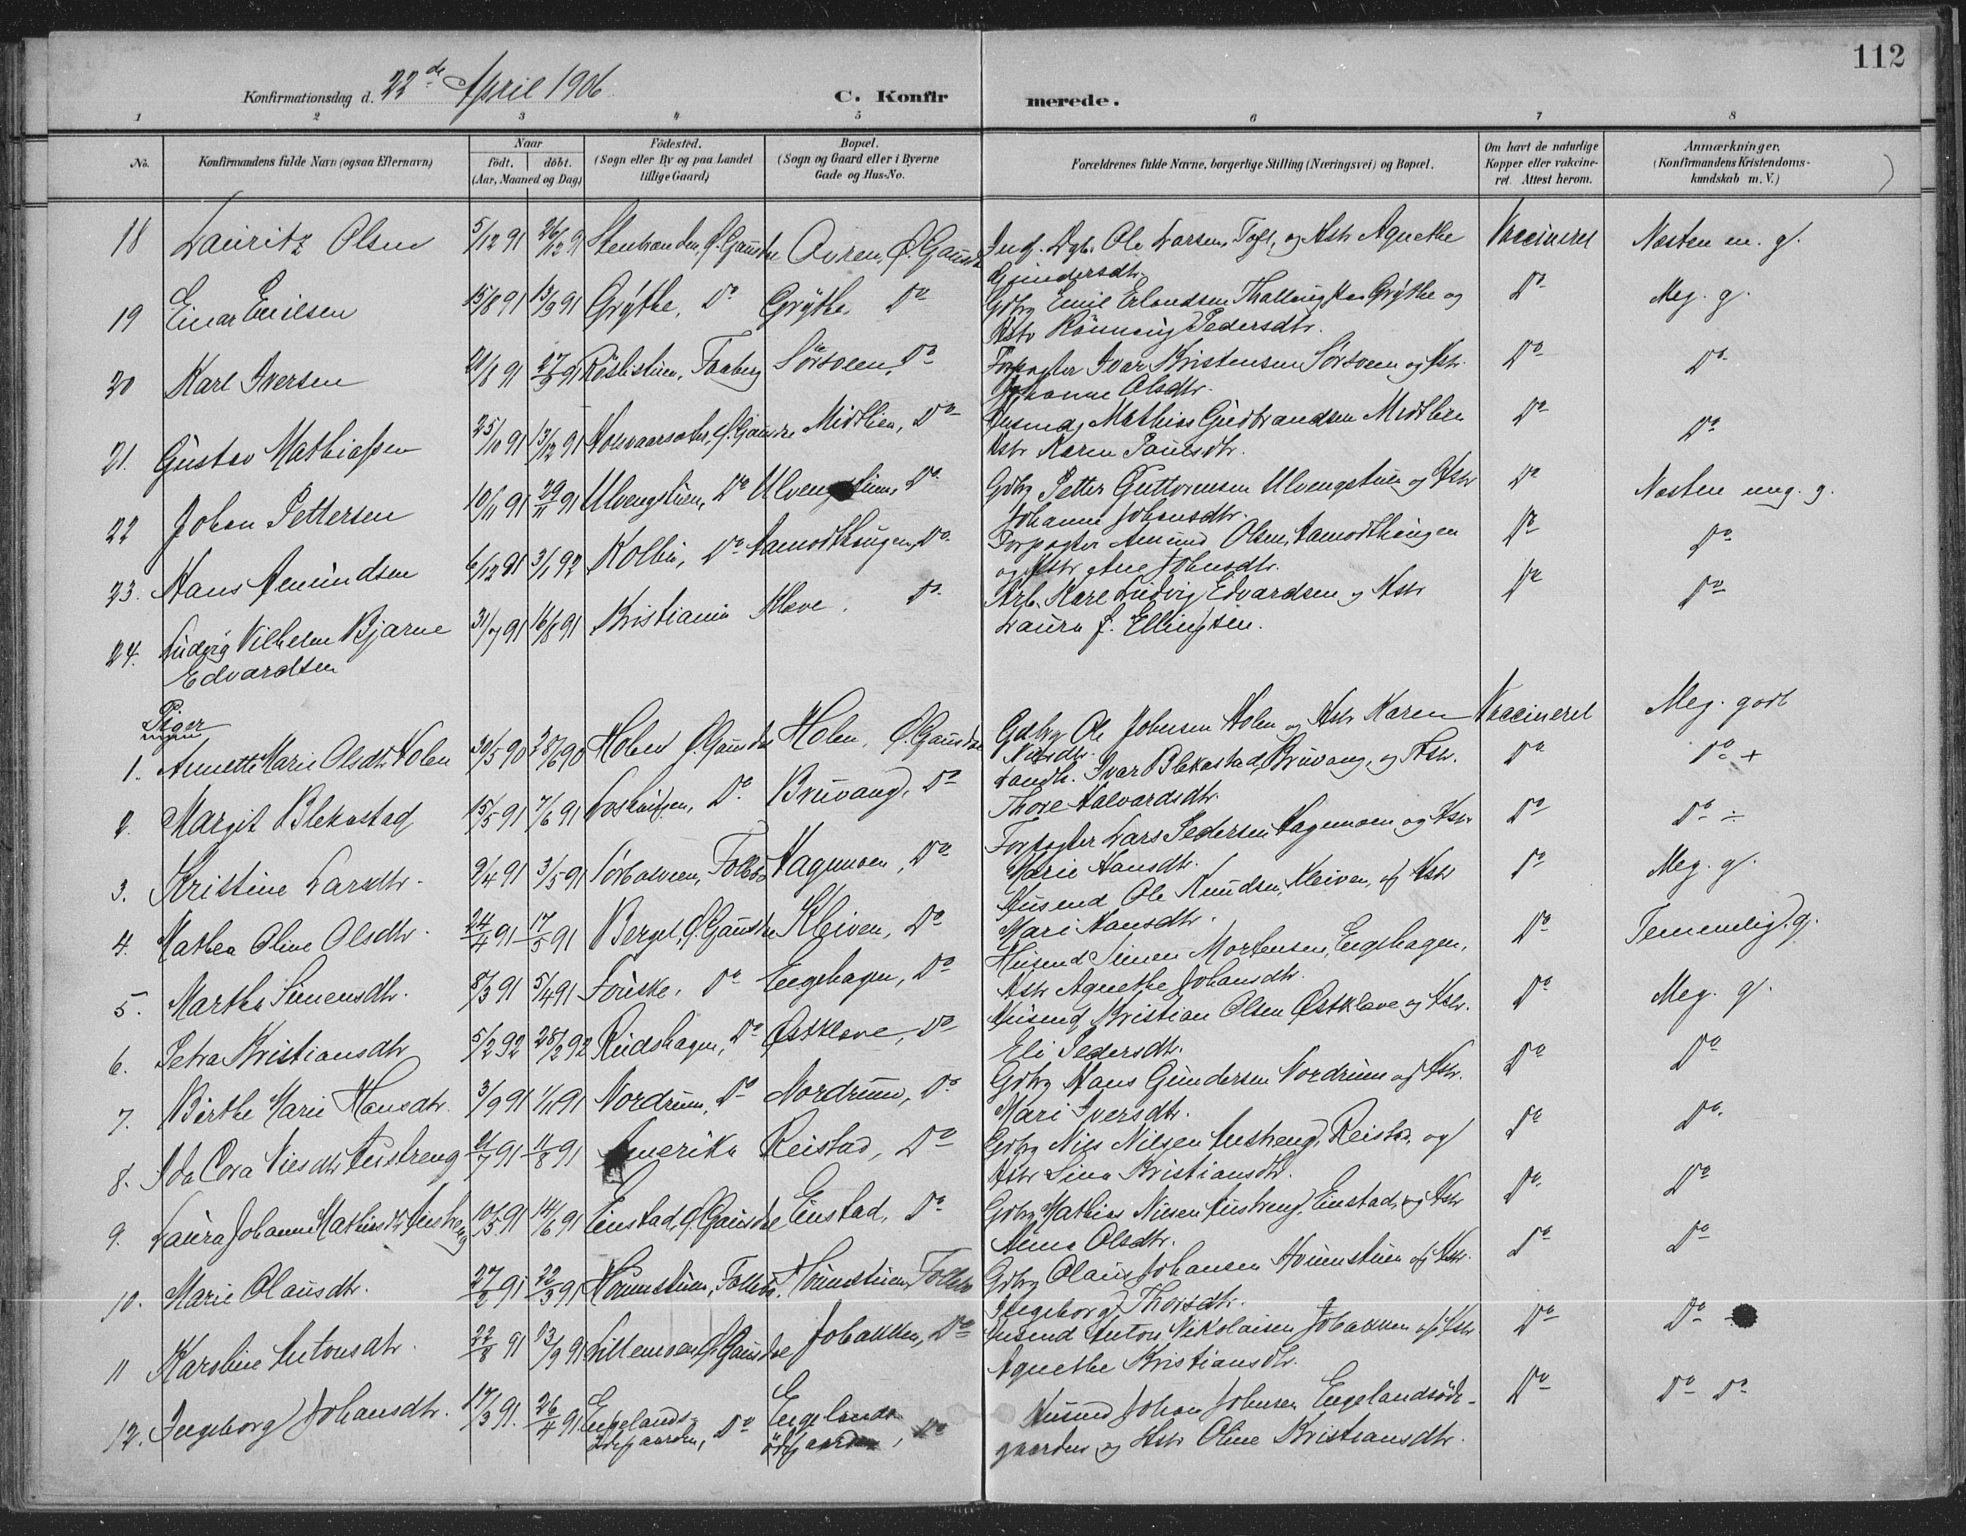 112
Konfirmationsdag d. 22de April 1906
C. Konfirmerede.
1 2 3 4 5 6 7 8
No. Konfirmandens fulde Navn (ogsaa Efternavn) Naar födt. döbt. (Aar, Maaned og Dag) Födested. (Sogn eller By og paa Landet tillige Gaard) Bopæl. (Sogn og Gaard eller i Byerne Gade og Hus-No. Forældrenes fulde Navne, borgerlige Stilling (Næringsvei) og Bopæl. Om havt de naturlige Kopper eller vakcineret. Attest herom. Anmærkninger. (Konfirmandens Kristendomskundskab m. V.)
18 Lauritz Olsen 5/12 91 26/12 91 Ø. Gausdal Ø. Gausdal Ole Larsen, Toft, og Hstr Agnethe Gundersdtr. Vaccineret Næsten m. g.
19 Einar Emilsen 15/8 91 13/9 91 Grythe, Do Grythe, Do Gdbr Emil Erlandsen Grythe og Hstr Rönnaug Pedersdtr. Do Meg. g.
20 Karl Iversen 21/8 91 27/9 91 Faaberg Sörsveen, Do Forpagter Ivar Kristensen Sörsveen og Hstr. Johanne Olsdtr. Do Do
21. Gustav Mathiassen 25/10 91 13/12 91 Ø. Gausdal Midtlien, Do Husmd Mathias Gudbrandsen Midtlien Hstr Karen Paulsdtr. Do Do
22 Johan Pettersen 10/11 91 29/11 91 Ulvengstuen, Do Ulvengstuen, Do Gdbr Petter Guttormsen Ulvengstuen og Hstr Johanne Johansdtr. Do Næsten meg. g.
23. Hans Amundsen 6/12 91 3/1 92 Kolbu, Do Aamodthaugen, Do Forpagter Amund Olsen, Aamodthaugen og Hstr Ane Johnsdtr. Do Do
24. Ludvig Vilhelm Bjarne Edvardsen 31/7 91 16/8 91 Kristiania Klæve, Do Arb. Karl Ludvig Edvardsen og Hstr Laura J. Ellingsen. Do Do
Piger
1. Annette Marie Olsdtr Holen 30/5 90 28/6 90 Holen Ø. Gausdal Holen, Ø. Gausdal Gdbr Ole Johnsen Holen og Hstr Karen Nilsdtr. Vaccineret Meg. godt
2. Margit Blekastad 15/5 91 7/6 91 Do Bruvang, Do Landh. Ivar Blekastad, Bruvang, og Hstr. Thore Halvardsdtr. Do Do +
3. Kristine Larsdtr. 9/4 91 3/5 91 Follebo Hagemoen, Do Forpagter Lars Pedersen Hagemoen og Hstr Marie Hansdtr. Do Do ÷
4. Mathea Oline Olsdtr. 24/4 91 17/5 91 Berget, Ø. Gausdal Kleiven, Do Husmd Ole Knudsen, Kleiven, og Hstr Mari Hansdtr. Do Meg. g.
5. Marthe Simensdtr. 8/3 91 5/4 91 Fouske, Do Engehagen, Do Husmd Simen Mortensen, Engehagen, Hstr Agnethe Johansdtr. Do Temmelig g.
6. Petra Kristiansdtr 5/2 92 28/2 92 Rudshagen, Do Østklæve, Do Husmd Kristian Olsen Østklæve og Hstr. Eli Pedersdtr. Do Meg. g.
7. Birthe Marie Hansdtr. 3/9 91 1/11 91 Nordrum, Do Nordrum, Do Gdbr Hans Gundersen Nordrum og Hstr. Mari Iversdtr. Do Do
8. Ida Cora Nielsdtr Austreng 21/7 91 11/8 91 Amerika Reistad, Do Gdbr Nils Nilsen Austreng, Reistad, og Hstr Lina Kristiansdtr. Do Do
9. Laura Johanne Mathiasdtr Austreng 10/5 91 14/6 91 Einstad, Ø. Gausdal Einstad, Do Gdbr Mathias Nilsen Austreng, Einstad, og Hstr Anna Olsdtr. Do Do
10. Marie Olausdtr. 27/2 91 22/3 91 Follebo Follebo Gdbr Olaus Johansen og Hstr. Ingeborg Thorsdtr. Do Do
11 Karoline Antonsdtr 22/8 91 13/9 91 Lillemoen Ø. Gausdal Jobakken, Do Husmd Anton Nikolaisen Jobakken og Hstr Agnethe Kristiansdtr. Do Do
12. Ingeborg Johansdtr. 17/3 91. 26/4 91 Engelandsödegaarden, Do Engelandsödegaarden, Do Husmd Johan Johnsen Engelandsödegaarden og Hstr Oline Kristiansdtr. Do Do Do